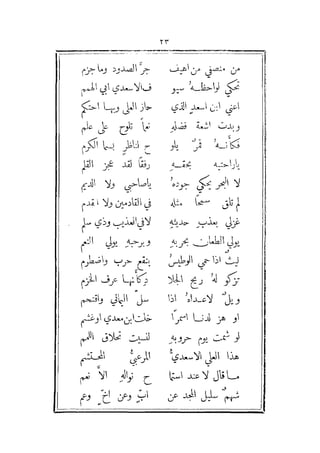 ٢٣
من منصفي من اهيف جرَّ الصدود وما جزم
تحكي لواحظهُ سيو ف الاسعدي ابي الهمم
اعني ابن اسعدٍ الذي حاز العلى وبها احتكم
وبدت اشعة فضلهِ نعماً تلوح على علم
فكأنهُ قمرٌ يلو ح لناظرٍ بسما الكرم
ياراحتيه بحقهِ رفقاً لقد عجز القلم
لا البحر يحكي جودهُ ياصاحبي ولا الديم
لم تلقَ سمحاً مثله في القادمين ولا القدم
غزلي بعذب حديثهِ لا في العذيب وذي سلم
يولي الطعان بحربهِ وبرحبهِ يولي النعم
ليثٌ اذا حمي الوطيسُ بنقع حرب واضطرم
تزكو لهُ ريح الجلا د كأنها عرف الخزم
ويلٌ لاعداهُ اذا سلَّ اليماني واقتحم
او هز لدنا اسمرًا خلت ابن معدي او غشم
لو شمت يوم حروبهِ لنسيت تحلاق اللمم
هذا العلي الاسعديُّ المرعبيُّ المحتشم
ما قال لا عند استما ح نوالهِ الاَّ نعم
شهمٌ سليل المجد عن ابٍ وعن اخٍ وعم